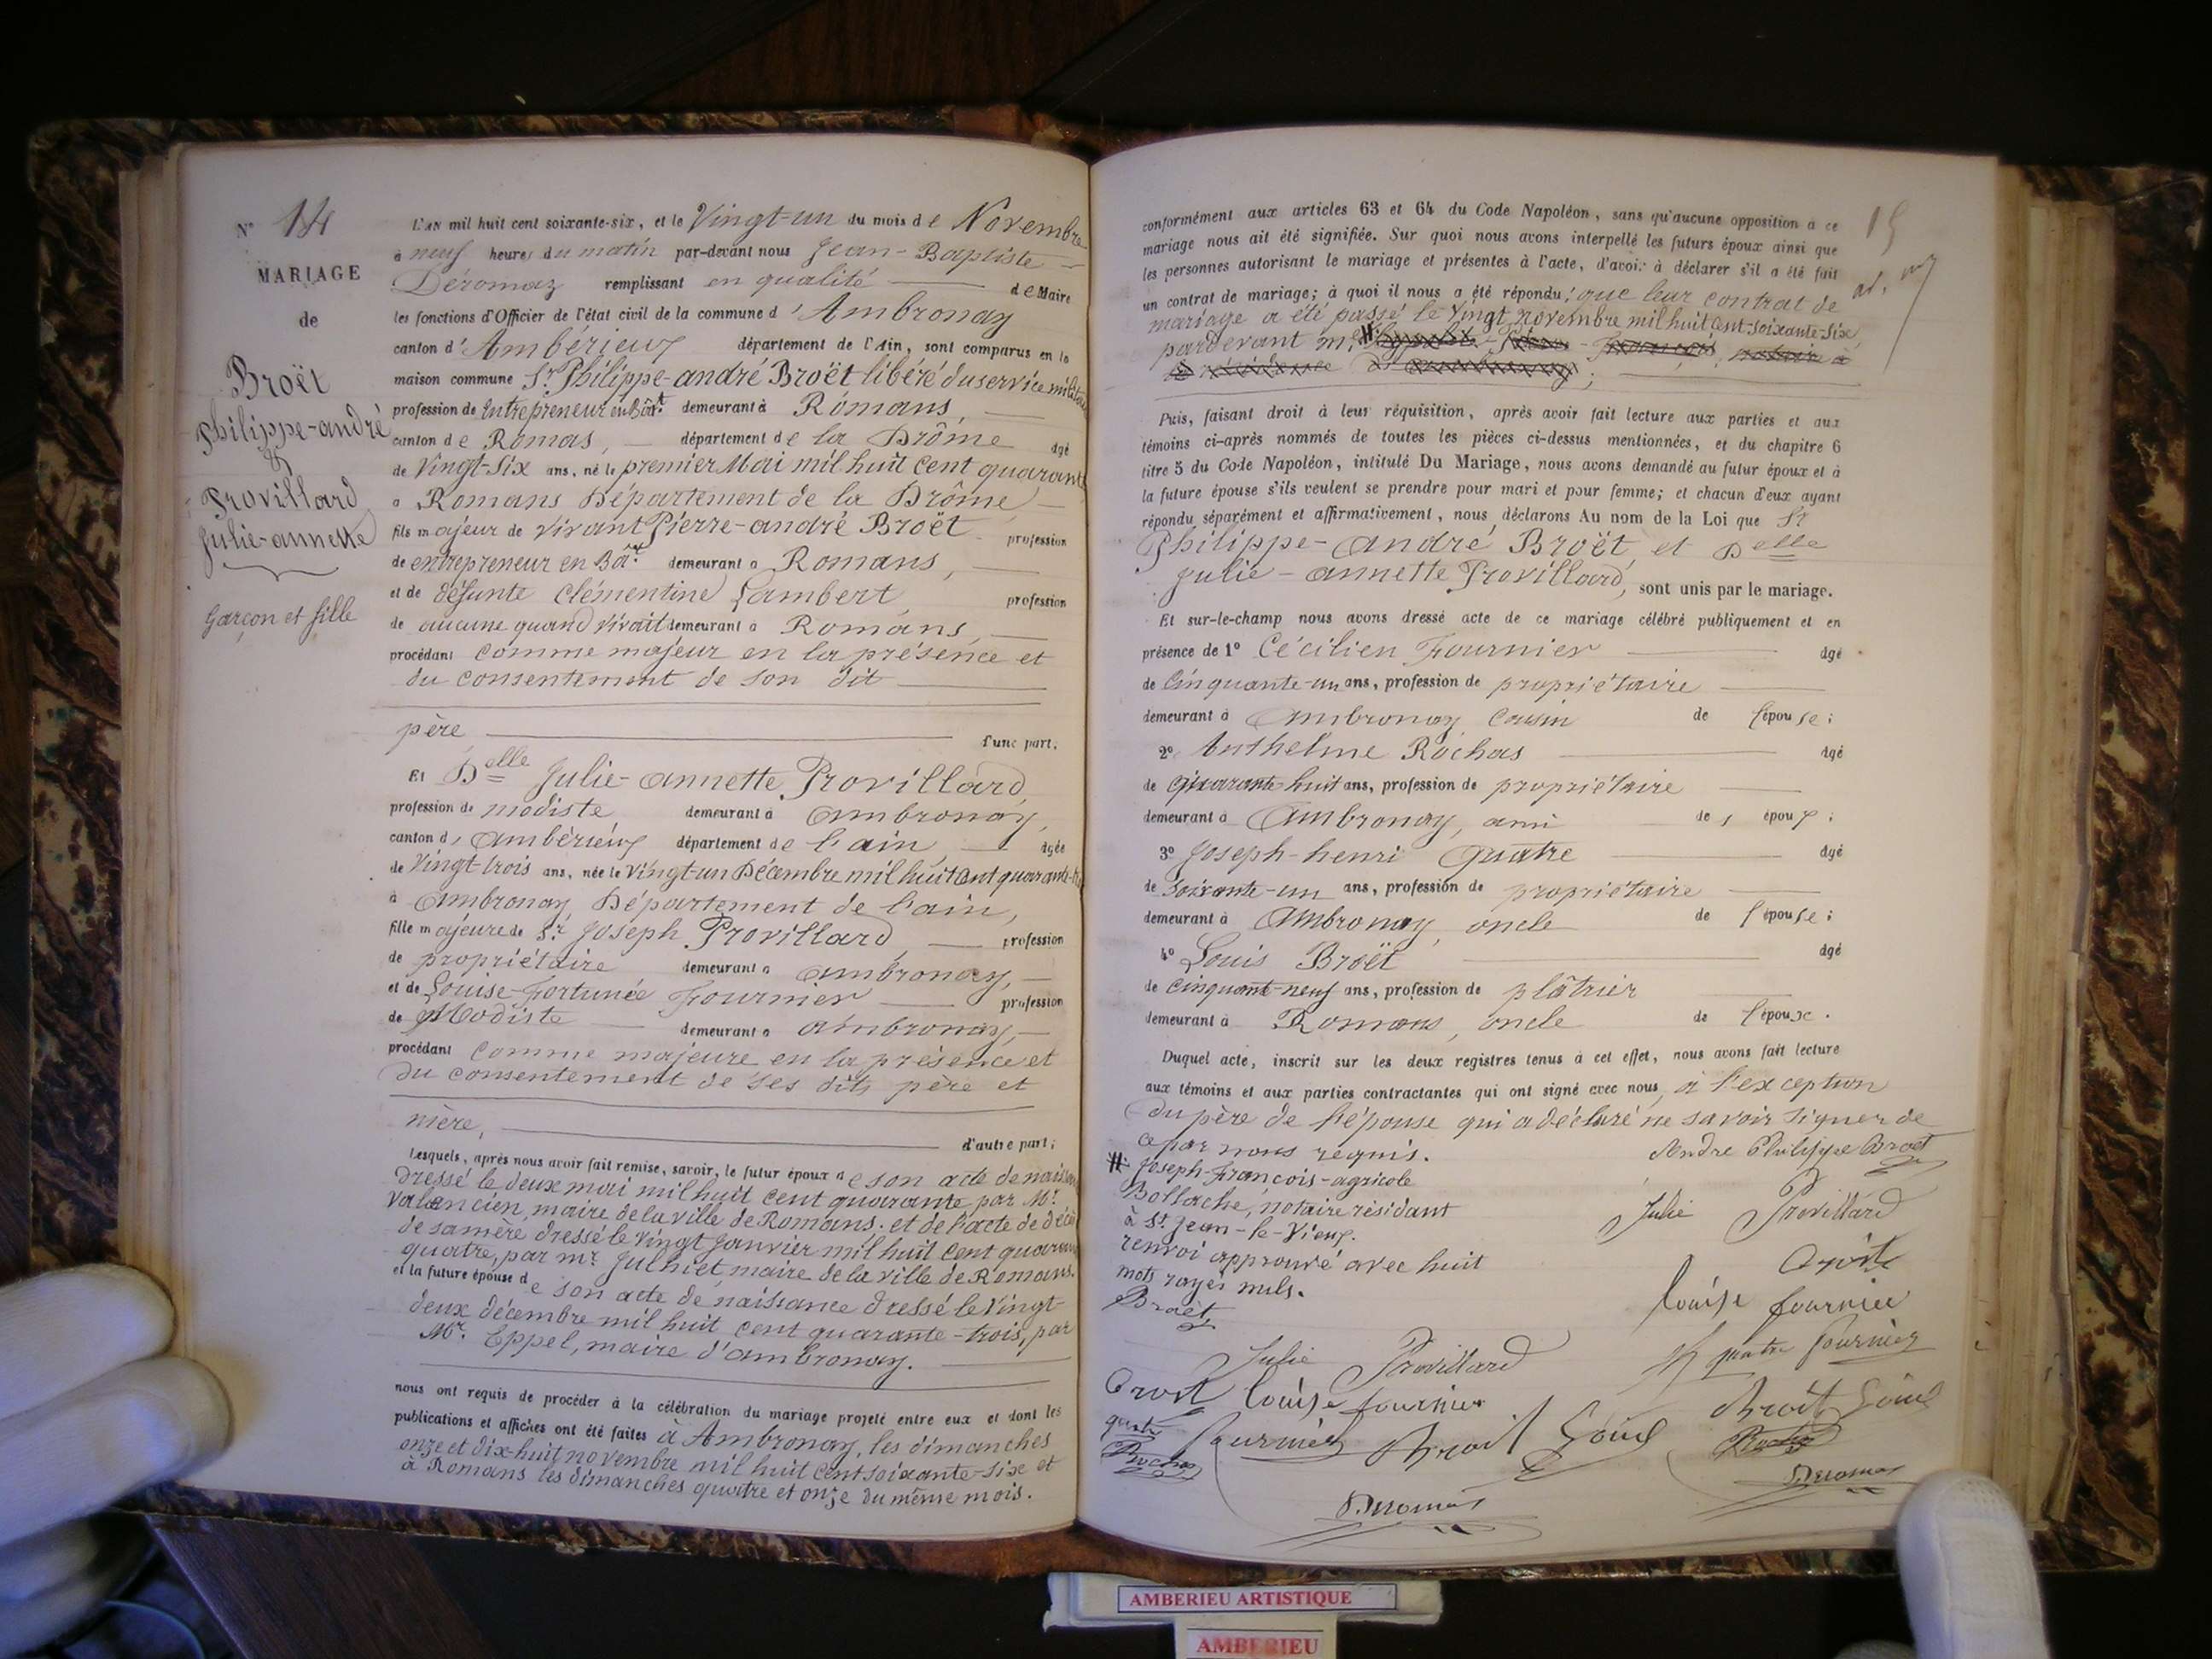 N° 14
MARIAGE
de
Broët
Philippe-andré
&
Provillard
Julie-annette
garçon et fille
L'AN mil huit cent soixante-six, et le Vingt-un du mois de Novembre
à neuf heures du matin par-devant nous Jean-Baptiste
Déromaz remplissant en qualité de Maire
les fonctions d'Officier de l'état civil de la commune d'Ambronay
canton d'Ambérieux département de l'Ain, sont comparus en la
maison commune Sr Philippe-andré Broët libéré du service militaire
profession de Entrepreneur en Bât.t demeurant à Romans,
canton de Romas, département de la Drôme âgé
de Vingt-six ans, né le premier Mai mil huit cent quarante
à Romans Département de la Drôme
fils majeur de vivant Pierre-andré Broët profession
de entrepreneur en Bât.t demeurant à Romans,
et de défunte Clémentine Lambert, profession
de aucune quand vivait demeurant à Romans,
procédant comme majeur en la présence et
du consentement de son dit
père d'une part.
Et Delle Julie-annette Provillard,
profession de modiste demeurant à ambronay,
canton d'ambérieux département de l'ain, âgée
de Vingt-trois ans, née le Vingt-un Décembre mil huit cent quarante-
à ambronay Département de l'ain,
fille majeure de Sr Joseph Provillard, profession
de propriétaire demeurant à ambronay,
et de Louise-Fortunée Fournier profession
de Modiste demeurant à ambronay,
procédant comme majeure en la présence et
du consentement de ses dits père et
mère, d'autre part;
Lesquels, après nous avoir fait remise, savoir, le futur époux de son acte de naissance
dressé le deux mai mil huit cent quarante par Mr.
Valencien, maire de la ville de Romans. et de l'acte de décès
de sa mère dressé le Vingt Janvier mil huit cent quarante
quatre, par mr. Julhiet, maire de la ville de Romans.
et la future épouse de son acte de naissance dressé le Vingt-
deux décembre mil huit cent quarante-trois, par
Mr. Eppel, maire d'ambronay.
nous ont requis de procéder à la célébration du mariage projeté entre eux et dont les
publications et affiches ont été faites à Ambronay, les dimanches
onze et dix-huit novembre mil huit cent soixante-six et
à Romans les dimanches quatre et onze du même mois.
15
conformément aux articles 63 et 64 du Code Napoléon, sans qu'aucune opposition à ce
mariage nous ait été signifiée. Sur quoi nous avons interpellé les futurs époux ainsi que
les personnes autorisant le mariage et présentes à l'acte, d'avoir à déclarer s'il a été fait
un contrat de mariage; à quoi il nous a été répondu: que leur contrat de
mariage a été passé le Vingt novembre mil huit cent-soixante-six
pardevant m.e #
Puis, faisant droit à leur réquisition, après avoir fait lecture aux parties et aux
témoins ci-après nommés de toutes les pièces ci-dessus mentionnées, et du chapitre 6
titre 5 du Code Napoléon, intitulé Du Mariage, nous avons demandé au futur époux et à
la future épouse s'ils veulent se prendre pour mari et pour femme; et chacun d'eux ayant
répondu séparément et affirmativement, nous déclarons Au nom de la Loi que Sr
Philippe-andré Broët et Delle
Julie-annette Provillard, sont unis par le mariage.
Et sur-le-champ nous avons dressé acte de ce mariage célébré publiquement et en
présence de 1° Cécilien Fournier âgé
de Cinquante-un ans, profession de propriétaire
demeurant à Ambronay, Cousin de l'épouse;
2° Anthelme Rochas âgé
de quarante-huit ans, profession de propriétaire
demeurant à Ambronay, ami des époux;
3° Joseph-henri Quatre âgé
de soixante-un ans, profession de propriétaire
demeurant à Ambronay, oncle de l'épouse;
4° Louis Broët âgé
de Cinquante-neuf ans, profession de plâtrier
demeurant à Romans, oncle de l'époux.
Duquel acte, inscrit sur les deux registres tenus à cet effet, nous avons fait lecture
aux témoins et aux parties contractantes qui ont signé avec nous, à l'exception
du père de l'épouse qui a déclaré ne savoir signer de
ce par nous requis.
André Philippe Broët
# Joseph-François-agricole
Bollache, notaire résidant
à St. Jean-le-Vieux.
Julie Provillard
renvoi approuvé avec huit
mots rayés nuls.
Broët
Louise fournier
Julie Provillard
quatre fournier
Louise fournier
Broët Louis
quatre
Rochas
fournier Broët Louis
Rochas
Deromas
Deromas
AMBERIEU ARTISTIQUE
AMBERIEU